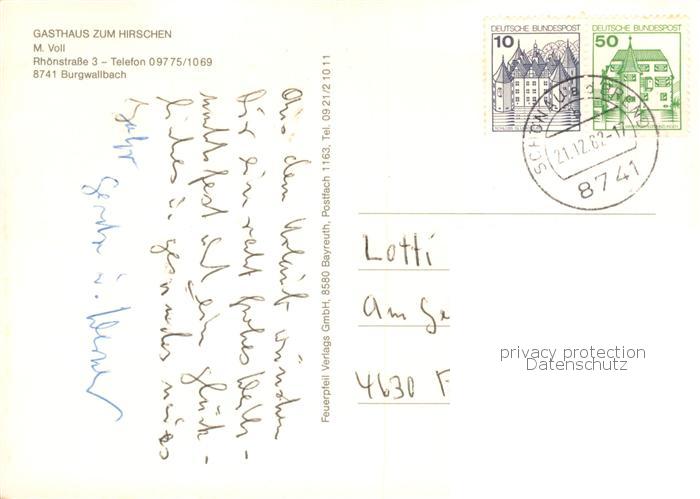 GASTHAUS ZUM HIRSCHEN
M. Voll
Rhönstraße 3 – Telefon 09775/1069
8741 Burgwallbach
10
DEUTSCHE BUNDESPOST
50
DEUTSCHE BUNDESPOST
21.12.82-17
8741
Aus dem Urlaub wünschen
wir ein recht frohes Weih-
nachtsfest und ein glück-
liches u. gesundes neues
Jahr
Gerda u. Werner
Feuerpfeil Verlags GmbH, 8580 Bayreuth, Postfach 1163, Tel. 0921/21011
Lotti
Am Ge
4630
privacy protection
Datenschutz